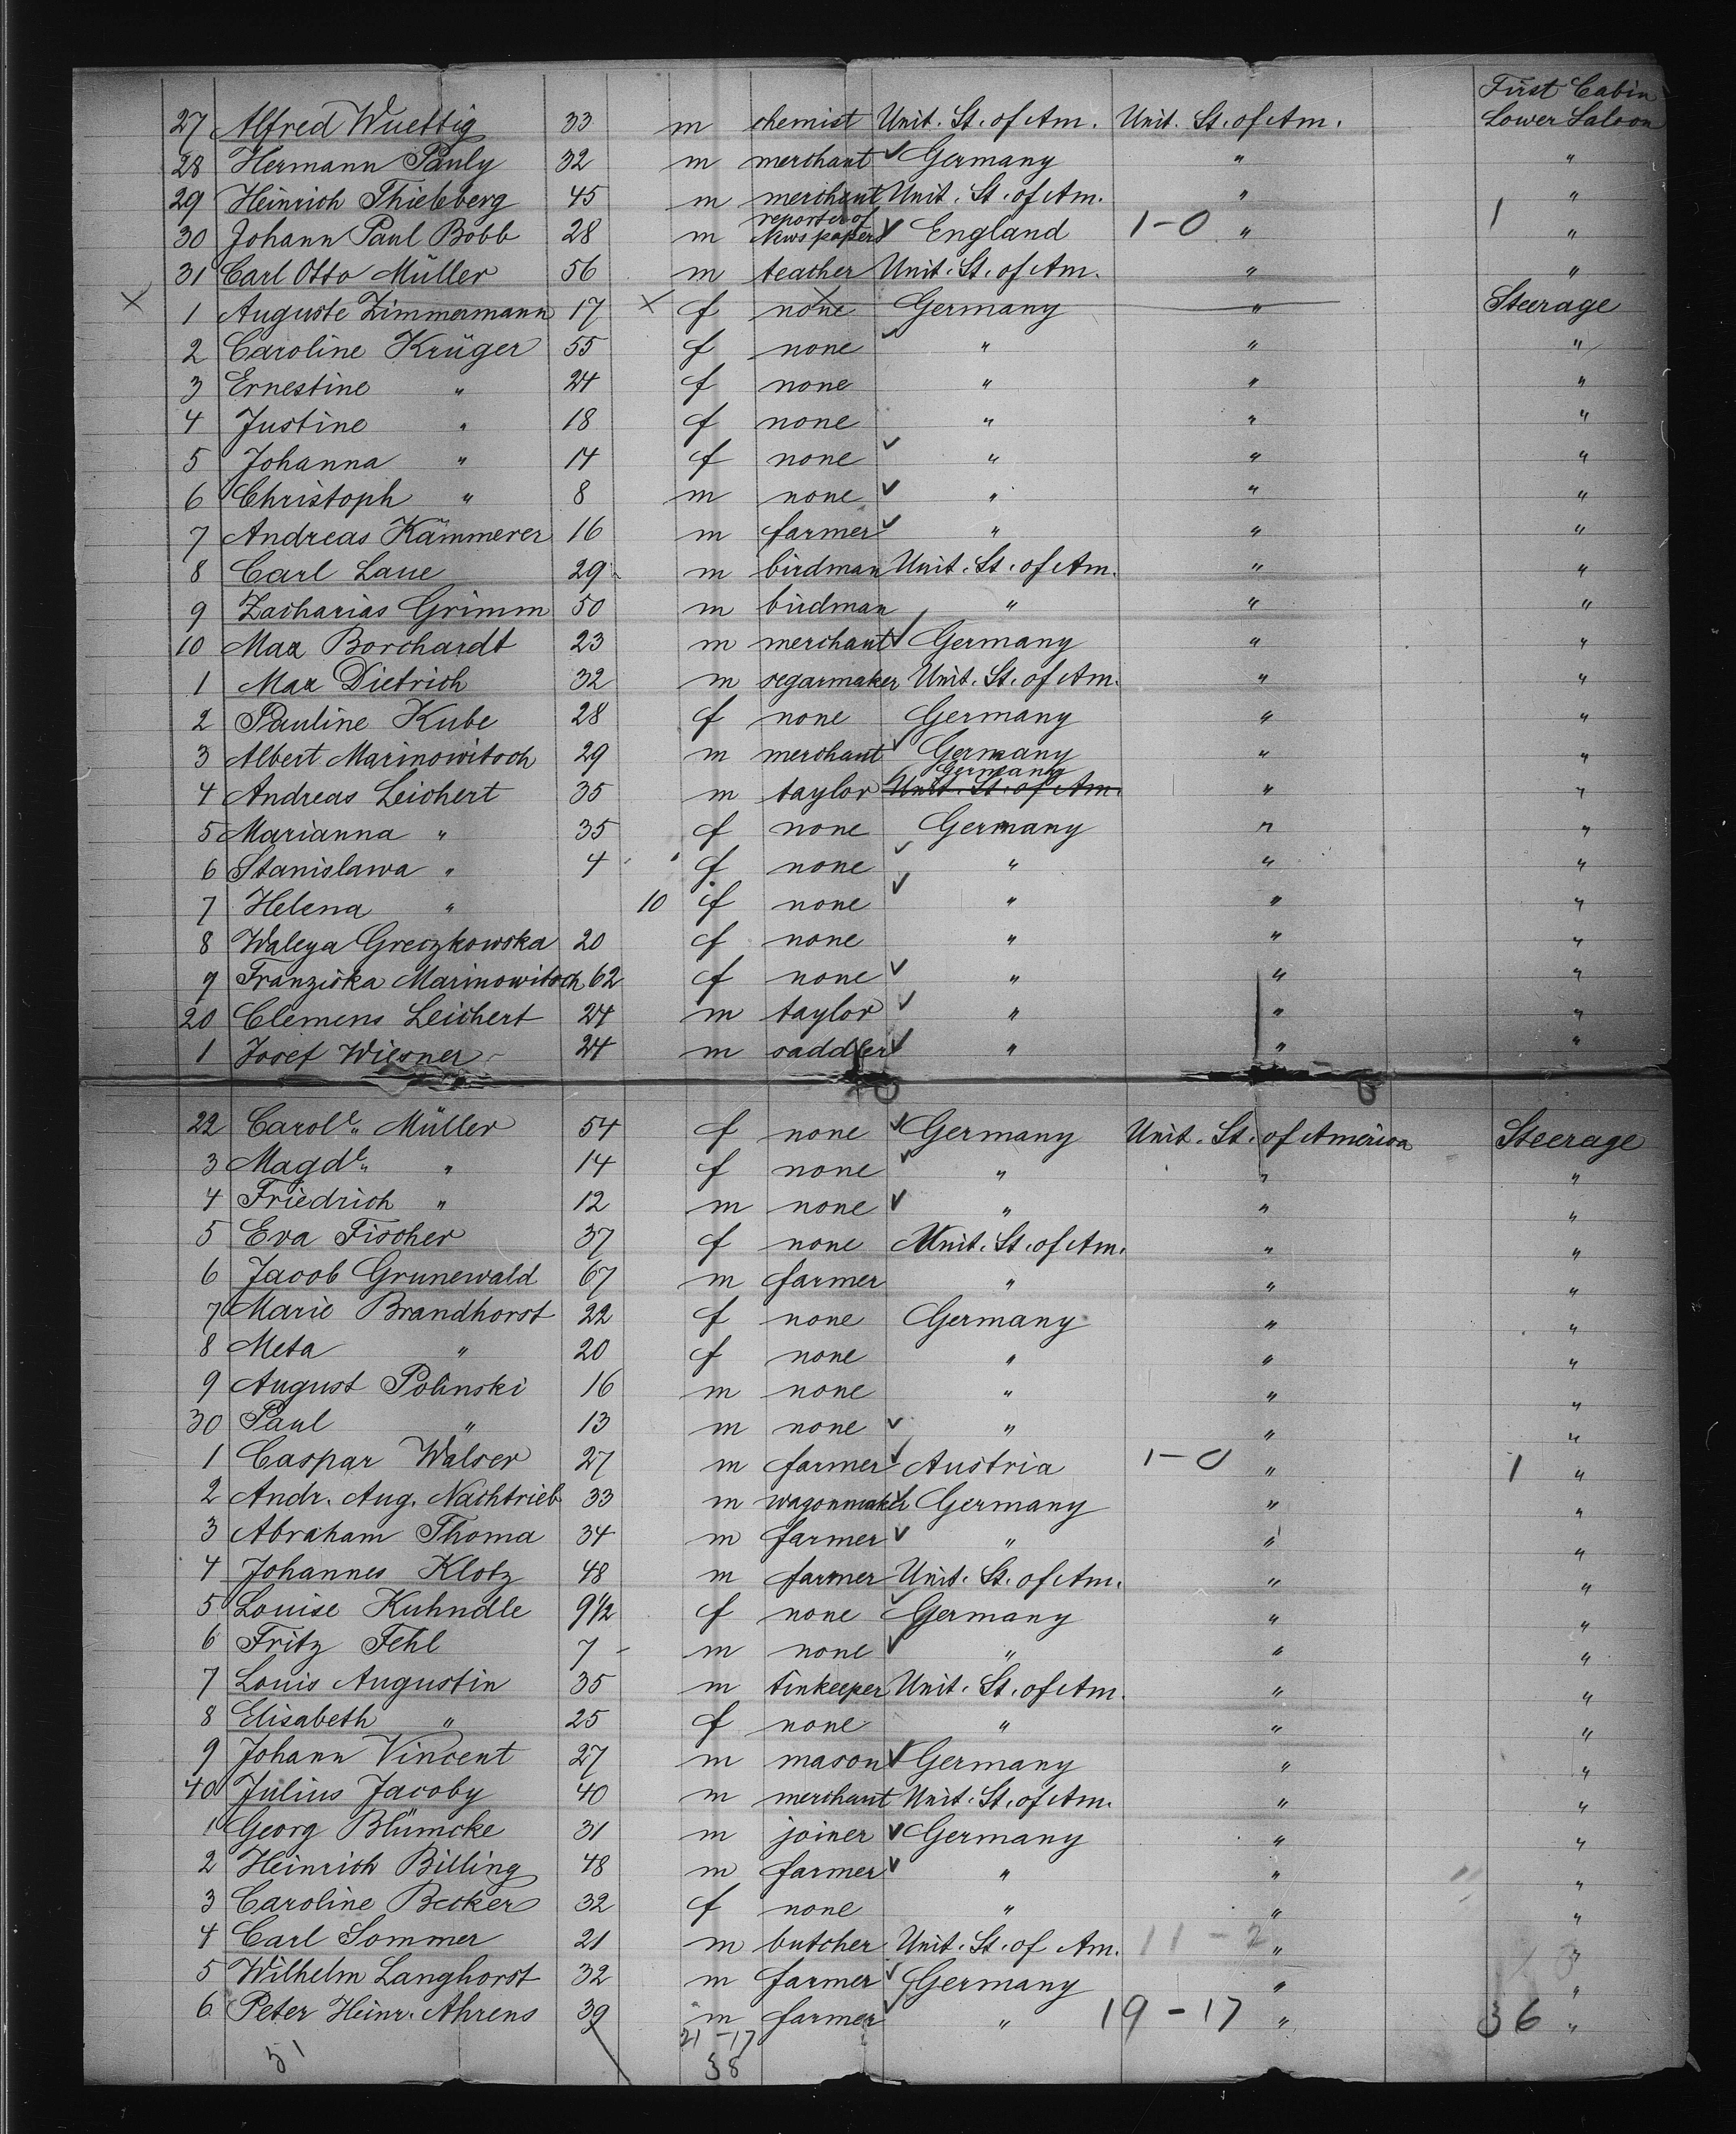 First Cabin
27 Alfred Wuettig 33 m chemist Unit. St. of Am. Unit. St. of Am. Lower Saloon
28 Hermann Pauly 32 m merchant ✓ Germany " "
29 Heinrich Thieleberg 45 m merchant Unit. St. of Am. " "
reporter of
30 Johann Paul Bobb 28 m Nws papers ✓ England 1-0 " 1 "
31 Carl Otto Müller 56 m teacher Unit. St. of Am. " "
× 1 Auguste Zimmermann 17 × f none Germany " Steerage
2 Caroline Krüger 55 f none ✓ " " "
3 Ernestine " 24 f none " " "
4 Justine " 18 f none " " "
5 Johanna " 14 f none ✓ " " "
6 Christoph " 8 m none ✓ " " "
7 Andreas Kämmerer 16 m farmer ✓ " " "
8 Carl Laue 29 m birdman Unit. St. of Am. " "
9 Zacharias Grimm 50 m birdman " " "
10 Max Borchardt 23 m merchant ✓ Germany " "
1 Max Dietrich 32 m segarmaker Unit. St. of Am. " "
2 Pauline Kube 28 f none Germany " "
3 Albert Marinowitsch 29 m merchant ✓ Germany " "
Germany
4 Andreas Leichert 35 m taylor Unit. St. of Am. " "
5 Marianna " 35 f none Germany " "
6 Stanislawa " 4 f none ✓ " " "
7 Helena " 10 f none ✓ " " "
8 Waleya Greczkowska 20 f none " " "
9 Franziska Marinowitsch 62 f none ✓ " " "
20 Clemens Leichert 24 m taylor ✓ " " "
1 Josef Wiesner 24 m saddler ✓ " " "
22 Carole. Müller 54 f none ✓ Germany Unit. St. of America Steerage
3 Magde. " 14 f none ✓ " " "
4 Friedrich " 12 m none ✓ " " "
5 Eva Fischer 37 f none Unit. St. of Am. " "
6 Jacob Grunewald 67 m farmer " " "
7 Marie Brandhorst 22 f none Germany " "
8 Meta " 20 f none " " "
9 August Polinski 16 m none " " "
30 Paul " 13 m none ✓ " " "
1 Caspar Walser 27 m farmer ✓ Austria 1-0 " 1 "
2 Andr. Aug. Nachtrieb 33 m wagonmaker ✓ Germany " "
3 Abraham Thoma 34 m farmer ✓ " " "
4 Johannes Klotz 48 m farmer Unit. St. of Am. " "
5 Louise Kuhndle 9 1/2 f none ✓ Germany " "
6 Fritz Fehl 7 m none ✓ " " "
7 Louis Augustin 35 m tinkeeper Unit. St. of Am. " "
8 Elisabeth " 25 f none " " "
9 Johann Vincent 27 m mason ✓ Germany " "
40 Julius Jacoby 40 m merchant Unit. St. of Am. " "
1 Georg Blümcke 31 m joiner ✓ Germany " "
2 Heinrich Billing 48 m farmer ✓ " " "
3 Caroline Becker 32 f none " " "
4 Carl Sommer 21 m butcher Unit. St. of Am. 11-2 " "
5 Wilhelm Langhorst 32 m farmer ✓ Germany " "
6 Peter Heinr. Ahrens 39 m farmer ✓ " 19-17 " 36 "
51 21-17
38